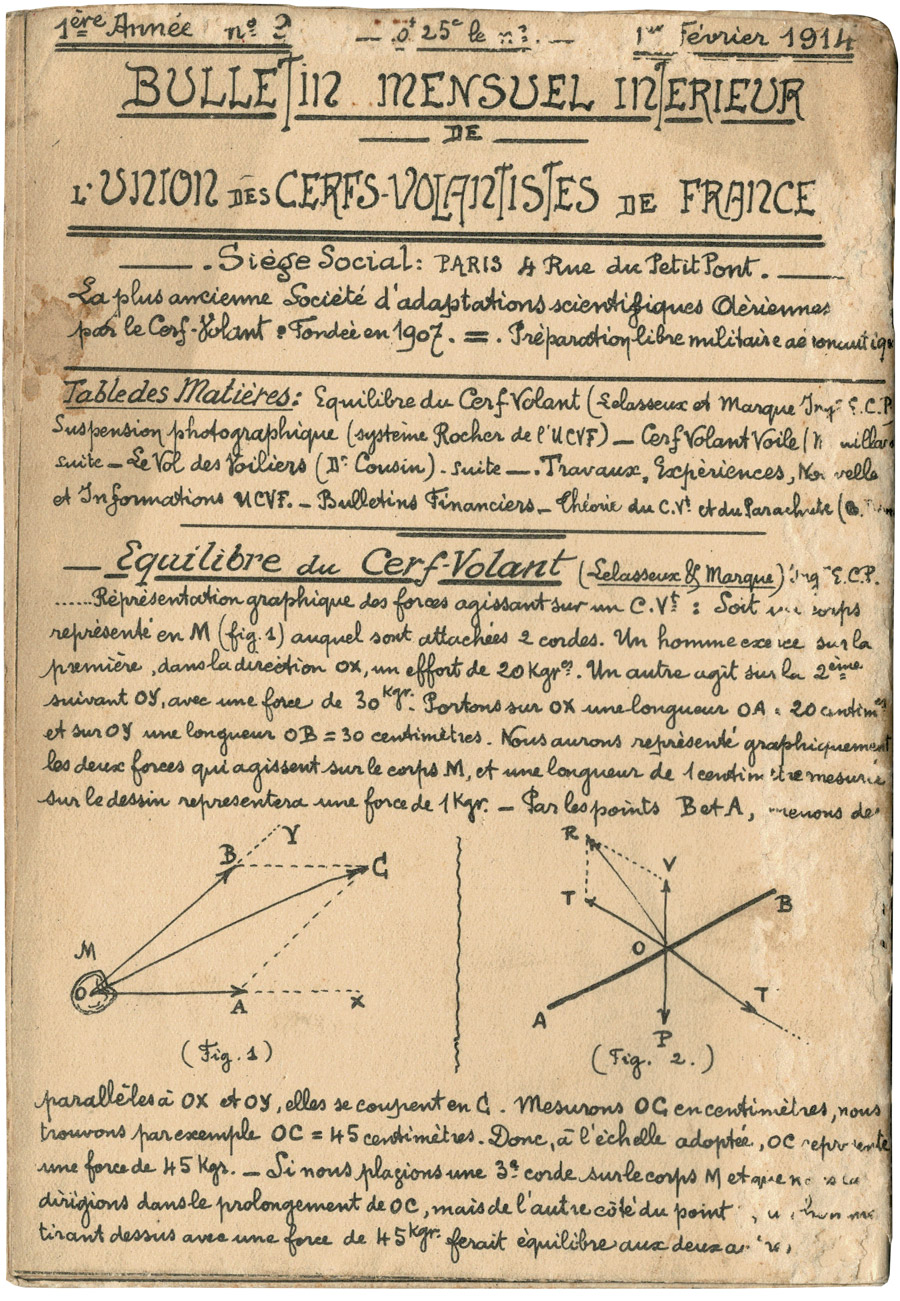 1ère Année nº 2 — 0f 25c le nº. — 1er Février 1914
BULLETIN MENSUEL INTERIEUR
— DE —
L'UNION DES CERFS-VOLANTISTES DE FRANCE
— . Siège Social : PARIS 4 Rue du Petit Pont . —
La plus ancienne Société d'adaptations scientifiques Aériennes
par le Cerf-Volant : Fondée en 1907 . = . Préparation libre militaire
Table des Matières : Equilibre du Cerf Volant (Lelasseux et Marque Ingrs E.C.P
Suspension photographique (système Rocher de l'UCVF) — Cerf Volant Voile
suite — Le Vol des Voiliers (Dr Cousin) . suite — . Travaux, Expériences,
et Informations UCVF. — Bulletins Financiers — Théorie du C.Vt et du Parachute
— Equilibre du Cerf-Volant (Lelasseux & Marque) Ingrs E.C.P.
......Réprésentation graphique des forces agissant sur un C.Vt : Soit un corps
représenté en M (fig. 1) auquel sont attachées 2 cordes. Un homme exerce sur la
première, dans la direction OX, un effort de 20 Kgres. Un autre agit sur la 2ème
suivant OY, avec une force de 30 Kgr. Portons sur OX une longueur OA = 20 centimes
et sur OY une longueur OB = 30 centimètres. Nous aurons représenté graphiquement
les deux forces qui agissent sur le corps M, et une longueur de 1 centimètre mesurée
sur le dessin representera une force de 1 Kgr. — Par les points B et A, menons des
B Y C
M
O A X
(Fig. 1)
R V
T B
O
A T
P
(Fig. 2.)
parallèles à OX et OY, elles se coupent en C. Mesurons OC en centimètres, nous
trouvons par exemple OC = 45 centimètres. Donc, à l'échelle adoptée, OC représente
une force de 45 Kgr. — Si nous plaçions une 3e corde sur le corps M et que
dirigions dans le prolongement de OC, mais de l'autre côté du point
tirant dessus avec une force de 45 Kgr. ferait équilibre aux deux